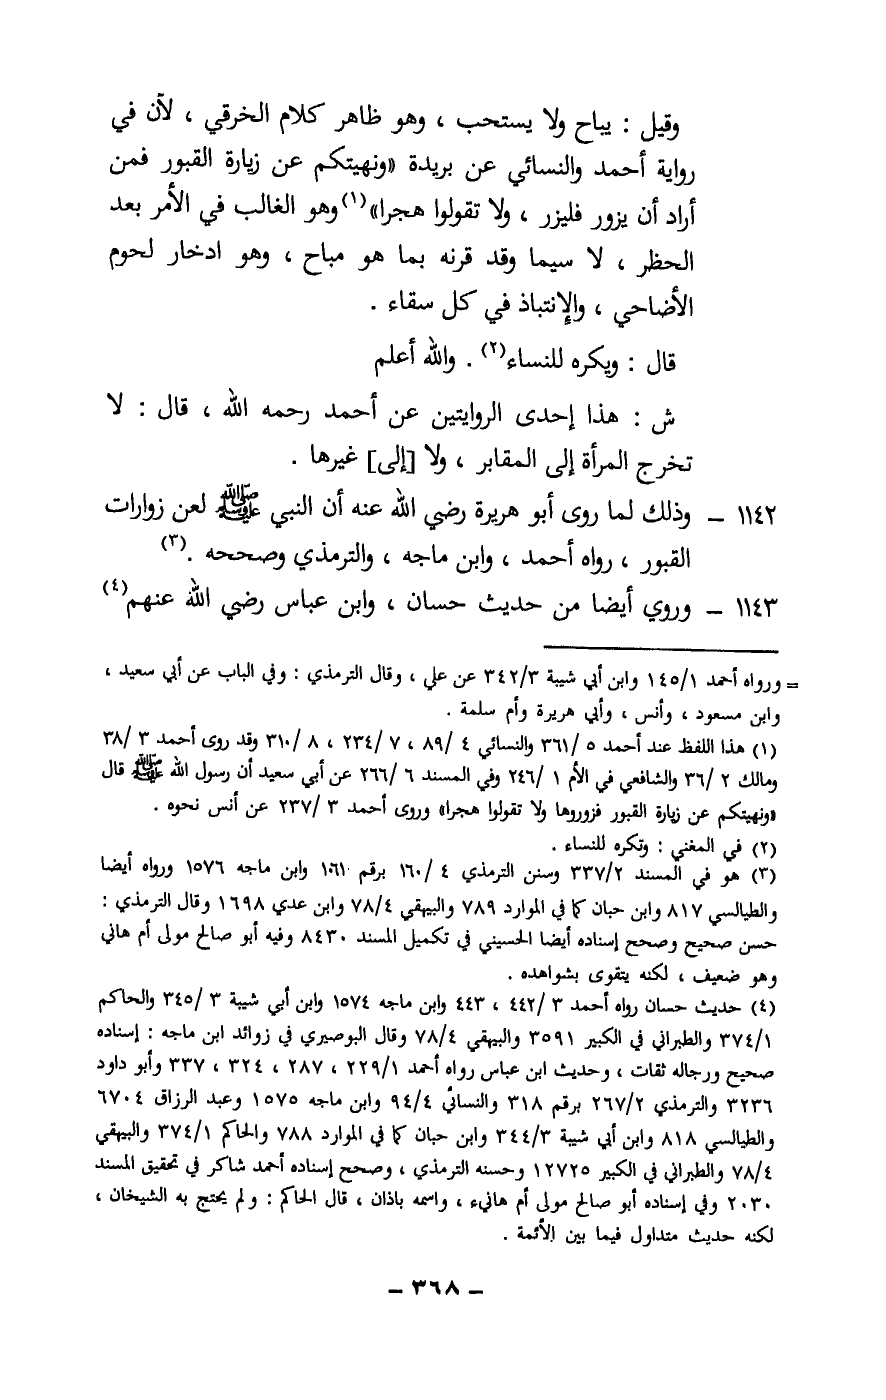 وقيل : يباح ولا يستحب ، وهو ظاهر كلام الخرقي ، لآن في
رواية أحمد والنسائي عن بريدة «ونهيتكم عن زيارة القبور فمن
أراد أن يزور فليزر ، ولا تقولوا هجرا»(١) وهو الغالب في الأمر بعد
الحظر ، لا سيما وقد قرنه بما هو مباح ، وهو ادخار لحوم
الأضاحي ، والإنتباذ في كل سقاء .
قال : ويكره للنساء(٢) . والله أعلم
ش : هذا إحدى الروايتين عن أحمد رحمه الله ، قال : لا
تخرج المرأة إلى المقابر ، ولا [إلى] غيرها .
١١٤٢ – وذلك لما روى أبو هريرة رضي الله عنه أن النبي ﷺ لعن زوارات
القبور ، رواه أحمد ، وابن ماجه ، والترمذي وصححه .(٣)
١١٤٣ – وروي أيضا من حديث حسان ، وابن عباس رضي الله عنهم(٤)
= ورواه أحمد ١٤٥/١ وابن أبي شيبة ٣٤٢/٣ عن علي ، وقال الترمذي : وفي الباب عن أبي سعيد ،
وابن مسعود ، وأنس ، وأبي هريرة وأم سلمة .
(١) هذا اللفظ عند أحمد ٥ /٣٦١ والنسائي ٤ /٨٩ ، ٧ /٢٣٤ ، ٨ /٣١٠ وقد روى أحمد ٣ /٣٨
ومالك ٢ /٣٦ والشافعي في الأم ١ /٢٤٦ وفي المسند ٦ /٢٦٦ عن أبي سعيد أن رسول الله ﷺ قال
«ونهيتكم عن زيارة القبور فزوروها ولا تقولوا هجرا» وروى أحمد ٣ /٢٣٧ عن أنس نحوه .
(٢) في المغني : وتكره للنساء .
(٣) هو في المسند ٣٣٧/٢ وسنن الترمذي ٤ /١٦٠ برقم ١٠٦١ وابن ماجه ١٥٧٦ ورواه أيضا
والطيالسي ٨١٧ وابن حبان كما في الموارد ٧٨٩ والبيهقي ٧٨/٤ وابن عدي ١٦٩٨ وقال الترمذي :
حسن صحيح وصحح إسناده أيضا الحسيني في تكميل المسند ٨٤٣٠ وفيه أبو صالح مولى أم هاني
وهو ضعيف ، لكنه يتقوى بشواهده .
(٤) حديث حسان رواه أحمد ٣ /٤٤٢ ، ٤٤٣ وابن ماجه ١٥٧٤ وابن أبي شيبة ٣ /٣٤٥ والحاكم
٣٧٤/١ والطبراني في الكبير ٣٥٩١ والبيهقي ٧٨/٤ وقال البوصيري في زوائد ابن ماجه : إسناده
صحيح ورجاله ثقات ، وحديث ابن عباس رواه أحمد ٢٢٩/١ ، ٢٨٧ ، ٣٢٤ ، ٣٣٧ وأبو داود
٣٢٣٦ والترمذي ٢٦٧/٢ برقم ٣١٨ والنسائي ٩٤/٤ وابن ماجه ١٥٧٥ وعبد الرزاق ٦٧٠٤
والطيالسي ٨١٨ وابن أبي شيبة ٣٤٤/٣ وابن حبان كما في الموارد ٧٨٨ والحاكم ٣٧٤/١ والبيهقي
٧٨/٤ والطبراني في الكبير ١٢٧٢٥ وحسنه الترمذي ، وصحح إسناده أحمد شاكر في تحقيق المسند
٢٠٣٠ وفي إسناده أبو صالح مولى أم هانيء ، واسمه باذان ، قال الحاكم : ولم يحتج به الشيخان ،
لكنه حديث متداول فيما بين الأئمة .
– ٣٦٨ –